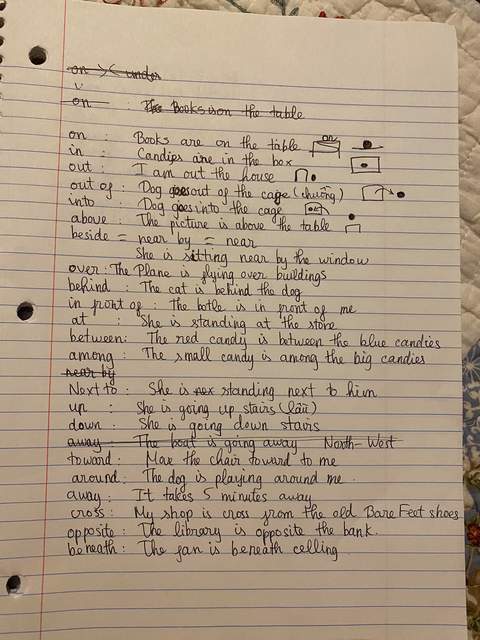 on >< under
on : The Books is on the table
on : Books are on the table on
in : Candies are in the box
out : I am out the house
out of : Dog goes out of the cage (chuồng)
into : Dog goes into the cage
above : The picture is above the table
beside = near by = near
She is sitting near by the window
over : The Plane is flying over buildings
behind : The cat is behind the dog
in front of : The botle is in front of me
at : She is standing at the store
between : The red candy is between the blue candies
among : The small candy is among the big candies
near by
Next to : She is nex standing next to him
up : She is going up stairs (lầu)
down : She is going down stairs
away : The boat is going away North-West
toward : Move the chair toward to me
around : The dog is playing around me.
away : It takes 5 minutes away
cross : My shop is cross from the old Bare Feet shoes
opposite : The library is opposite the bank.
beneath : The fan is beneath celling